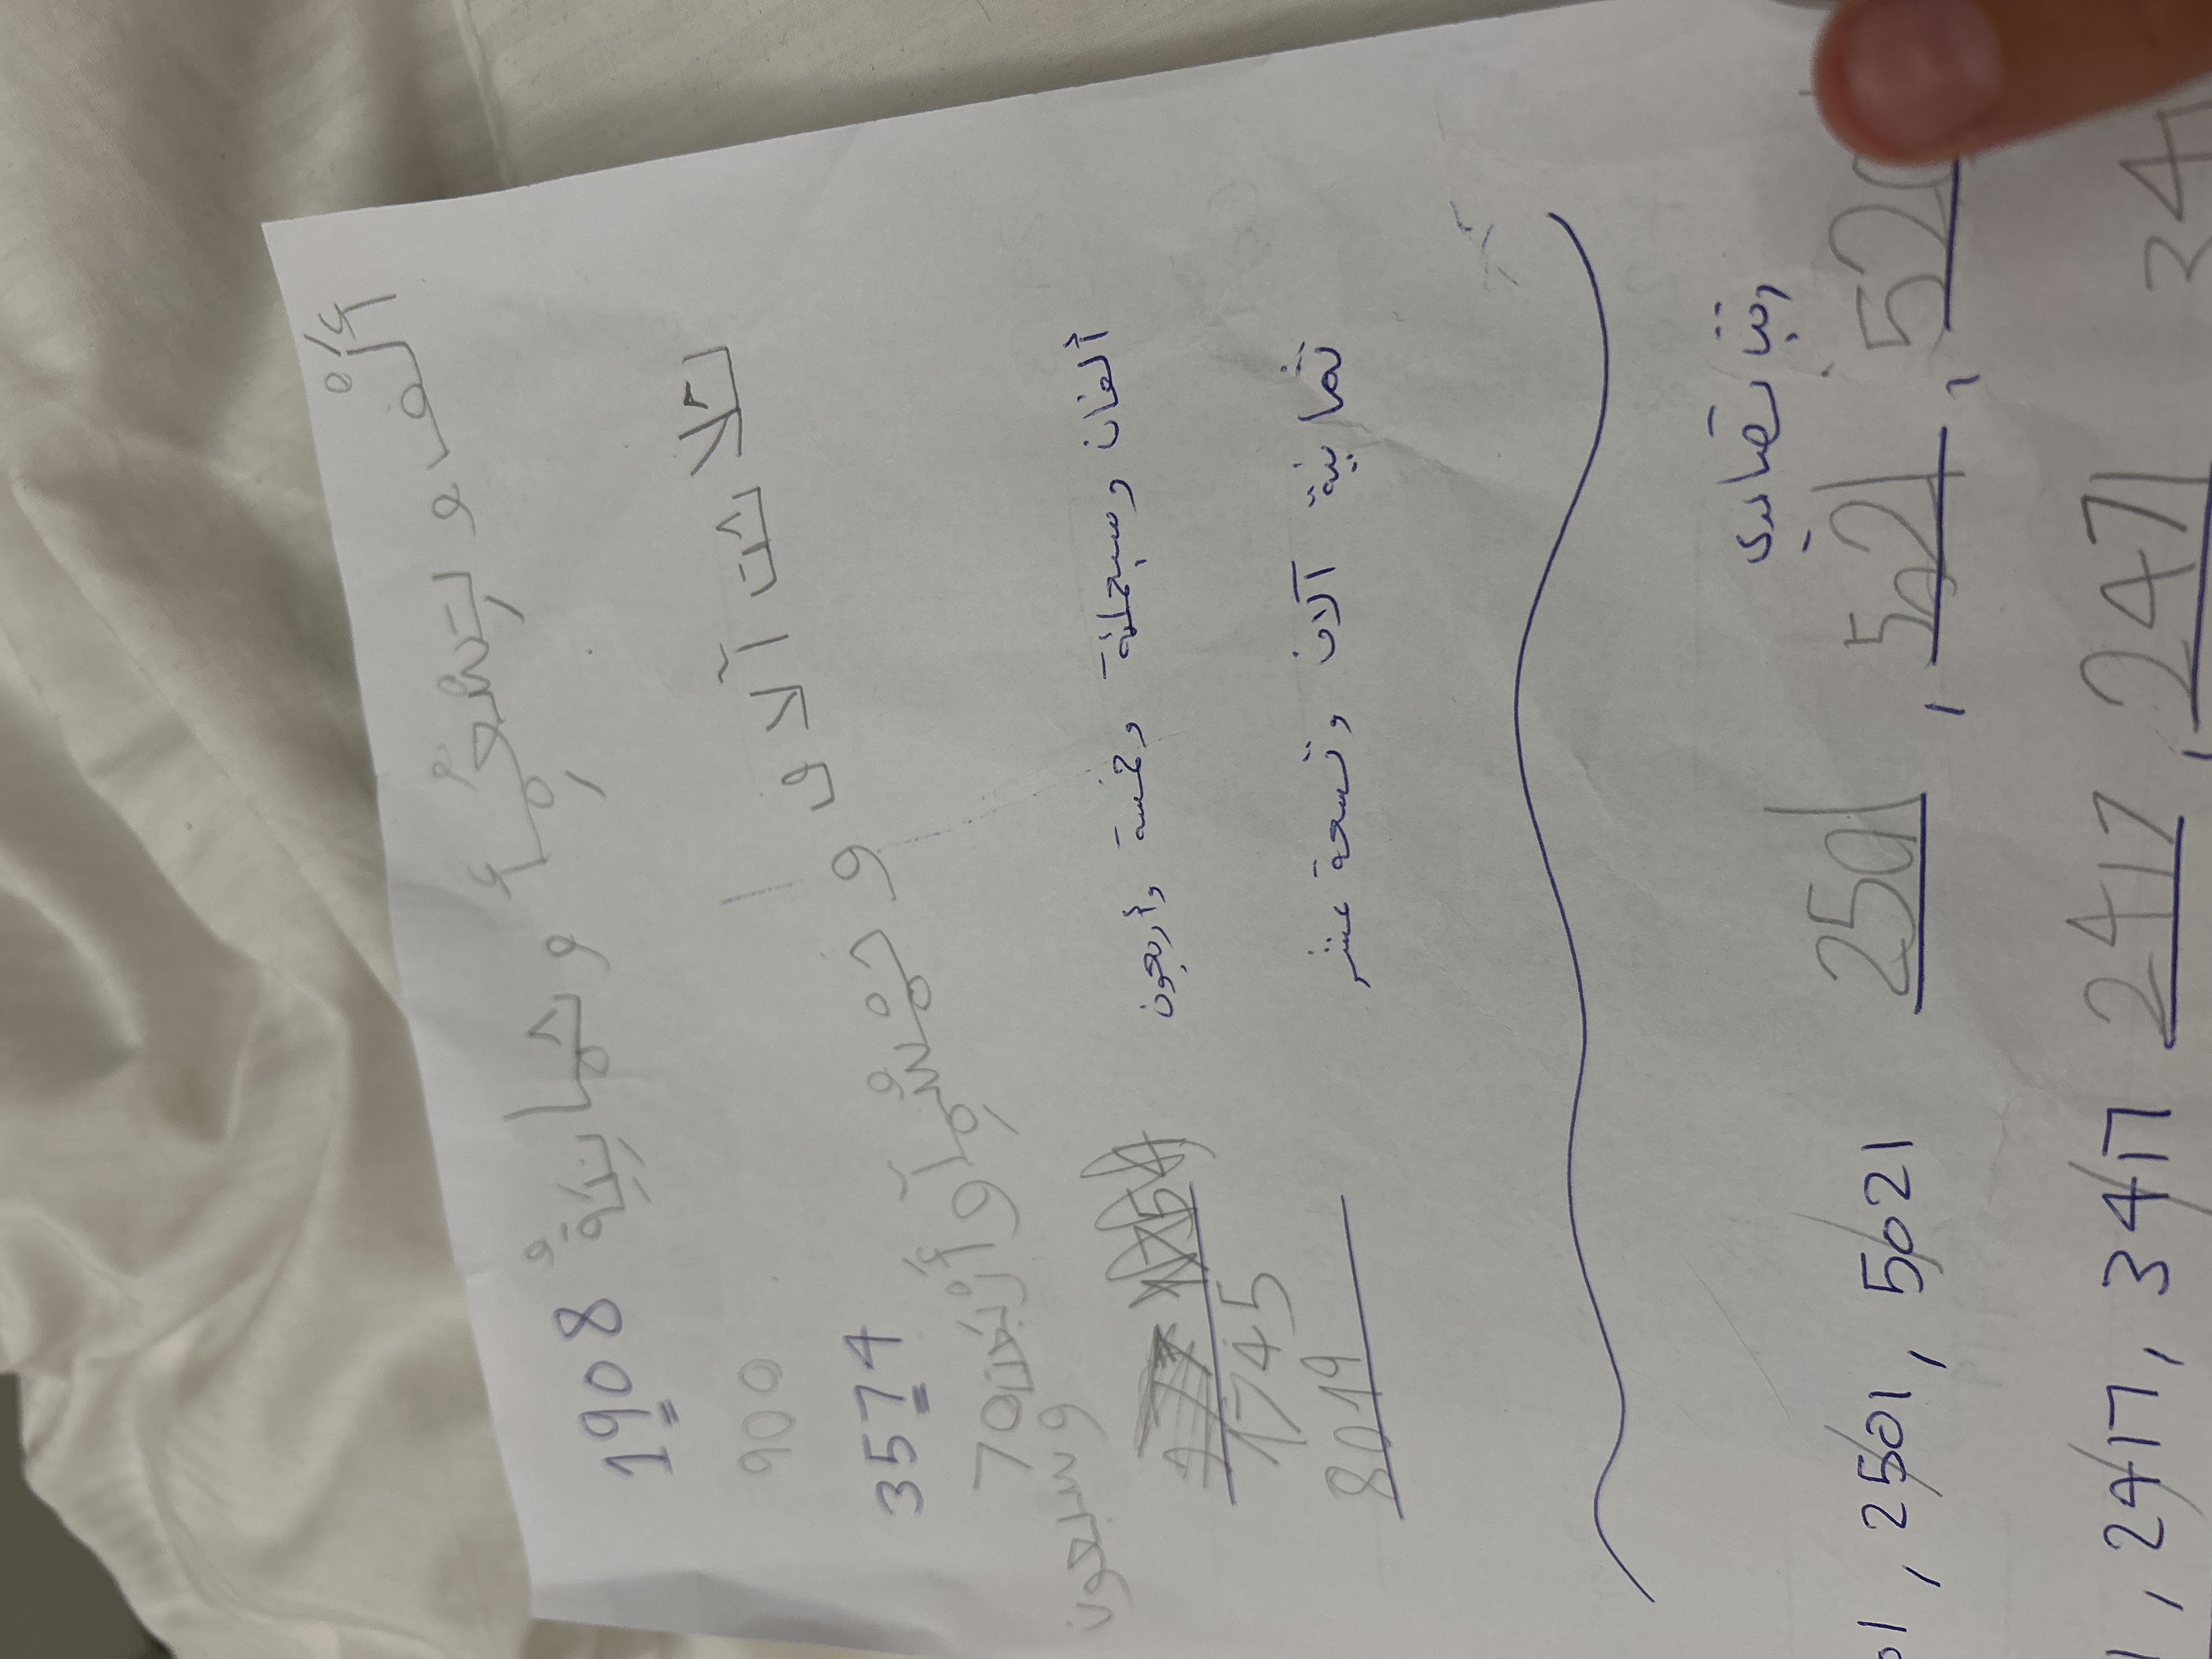 1908 أَلْف و تِسْعُمِأ وثمانِيَةُ
900
3574 ثلاثت آلاف و خَمْسُمِأ وأَرْبَعَة
70 وسبعون
1745 ألفان وسبعمئة وخمسة وأربعون
8019 ثمانية آلاف وتسعة عشر
رتب تصاعدي
, 2501, 5021 2501, 5021, 520
, 2417, 3417 2417, 2471 34